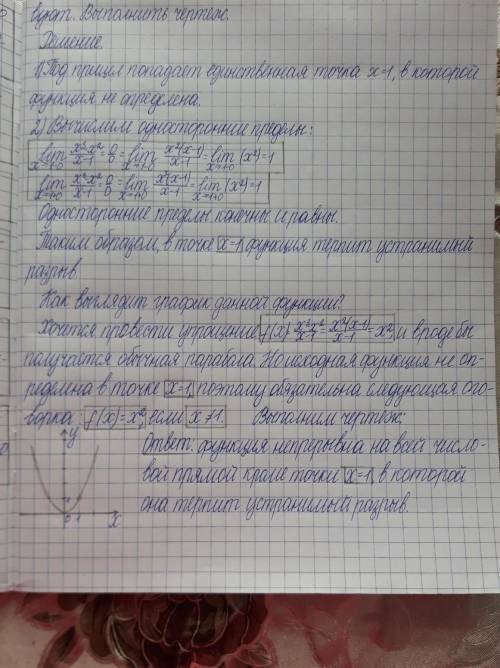 вуют. Выполнить чертеж.
Решение.
1) Под прицел попадает единственная точка x=1, в которой
функция не определена.
2) Вычислим односторонние пределы:
lim x→1-0 (x³-x²)/(x-1) = 0/0 = lim x→1-0 x²(x-1)/(x-1) = lim x→1-0 (x²)=1
lim x→1+0 (x³-x²)/(x-1) = 0/0 = lim x→1+0 x²(x-1)/(x-1) = lim x→1+0 (x²)=1
Односторонние пределы конечны и равны.
Таким образом, в точке x=1 функция терпит устранимый
разрыв
Как выглядит график данной функции?
Хочется провести упрощение f(x) (x³-x²)/(x-1) = x²(x-1)/(x-1) = x², и вроде бы
получается обычная парабола. Но исходная функция не оп-
ределена в точке x=1, поэтому обязательна следующая ого-
ворка: f(x)=x², если x≠1. Выполним чертеж:
Ответ: функция непрерывна на всей число-
вой прямой кроме точки x=1, в которой
она терпит устранимый разрыв.
y
1
0 1
x